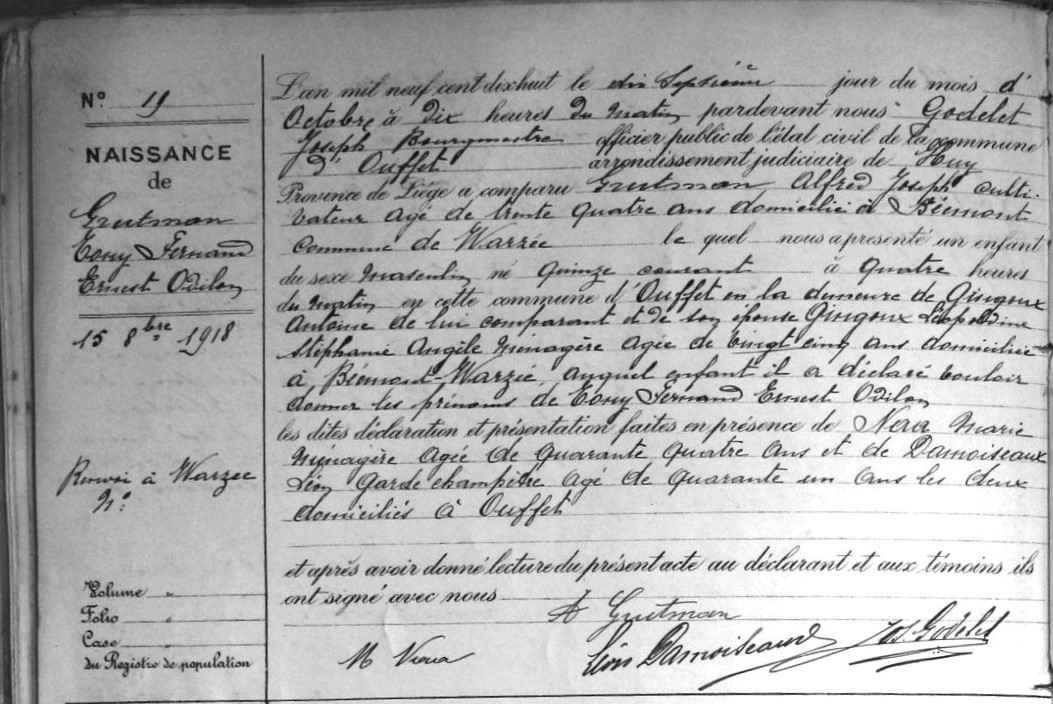 N° 19
NAISSANCE
de
Grutman
Tony Fernand
Ernest Odilon
15 8bre 1918
Renvoi à Warzée
N°
Volume "
Folio "
Case "
du Registre de population
L'an mil neuf cent dixhuit le dix Septième jour du mois d'
Octobre à dix heures du matin pardevant nous Godelet
Joseph Bourgmestre officier public de l'état civil de la commune
d'Ouffet arrondissement judiciaire de Huy
Province de Liége a comparu Grutman Alfred Joseph culti-
vateur agé de trente quatre ans domicilié à Bémont
commune de Warzée le quel nous a présenté un enfant
du sexe masculin né quinze courant à quatre heures
du matin en cette commune d'Ouffet en la demeure de Gingoux
Antoine de lui comparant et de son épouse Gingoux Léopoldine
Stéphanie Angèle ménagère agée de vingt cinq ans domiciliée
à Bémont-Warzée, auquel enfant il a déclaré vouloir
donner les prénoms de Tony Fernand Ernest Odilon
les dites déclaration et présentation faites en présence de Marie
ménagère agée de quarante quatre ans et de Damoiseaux
Léon garde champêtre agé de quarante un ans les deux
domiciliés à Ouffet
et après avoir donné lecture du présent acte au déclarant et aux témoins ils
ont signé avec nous
A Grutman
M
Léon Damoiseaux
Jos Godelet